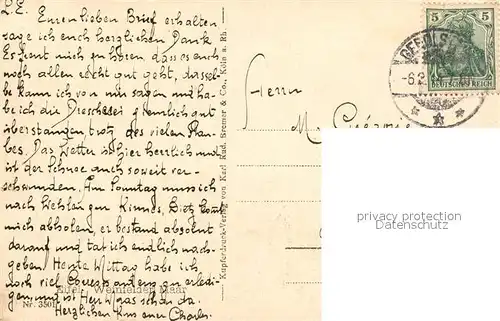 L. E. Euren lieben Brief erhalten,
sage ich euch herzlichen Dank
Es freut mich zu hören dass es euch
noch allen recht gut geht, dassel-
be kann ich von mir sagen und ha-
be ich die Drescherei ziemlich gut
überstanden, trotz des vielen Stau-
bes. Das Wetter ist hier herrlich und
ist der Schnee auch soweit ver-
schwunden. Am Sonntag muss ich
nach
mich abholen, er bestand absolut
darauf und tat ich endlich nach-
geben. Heute Mittag habe ich
noch viel Correspondenz zu erledi-
gen und ist Herr Maas schon da.
Herzlichen Kuss euer Charles.
Eifel. Weinfelder Maar
Nr. 3501
Kupferdruck-Verlag von Karl Rud. Bremer & Co., Köln a. Rh.
Herrn
M.
5 5
DEUTSCHES REICH
-6.2
privacy protection
Datenschutz